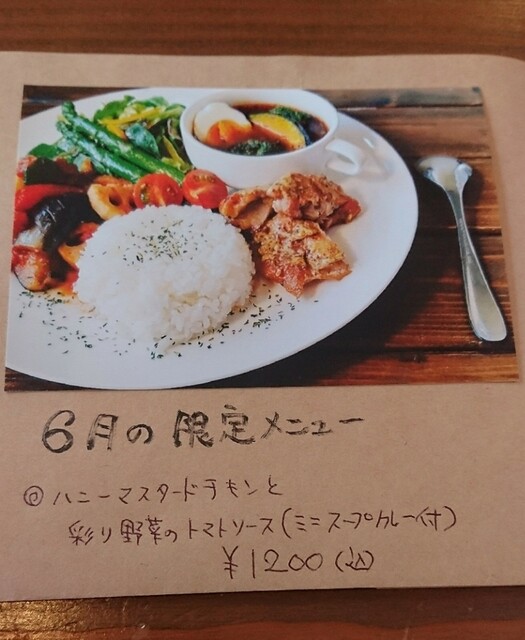 6月の限定メニュー
◎ハニーマスタードチキンと
彩り野菜のトマトソース(ミニスープカレー付)
¥1200(込)